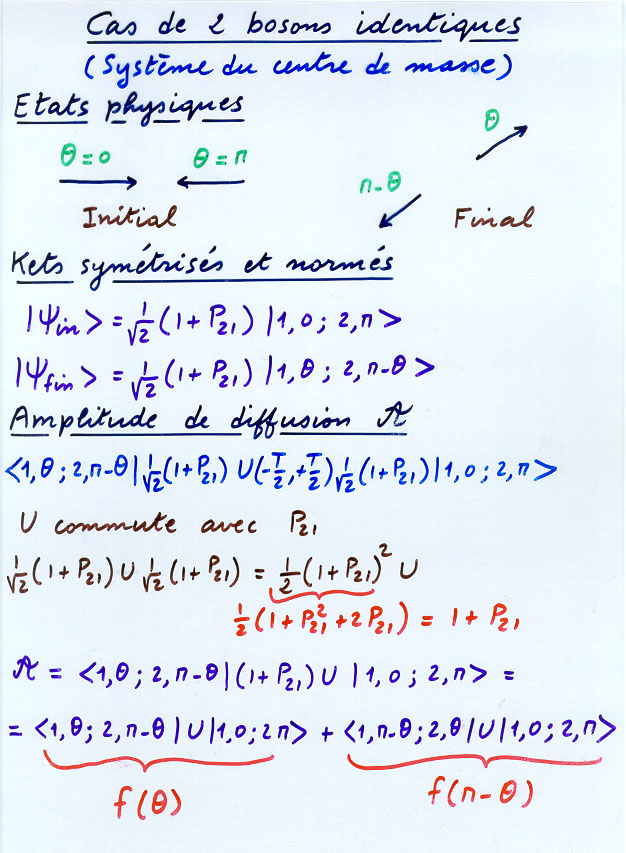 Cas de 2 bosons identiques
(Système du centre de masse)
Etats physiques
θ
θ=0 θ=π
π-θ
Initial Final
Kets symétrisés et normés
|Ψin> = 1/√2 (1+P21) |1,0; 2,π>
|Ψfin> = 1/√2 (1+P21) |1,θ; 2,π-θ>
Amplitude de diffusion A
<1,θ; 2,π-θ| 1/√2 (1+P21) U(-T/2,+T/2) 1/√2 (1+P21) |1,0; 2,π>
U commute avec P21
1/√2 (1+P21) U 1/√2 (1+P21) = 1/2 (1+P21)² U
1/2 (1+P21²+2P21) = 1+P21
A = <1,θ; 2,π-θ|(1+P21)U |1,0; 2,π> =
= <1,θ; 2,π-θ|U|1,0; 2π> + <1,π-θ; 2,θ|U|1,0; 2,π>
f(θ) f(π-θ)